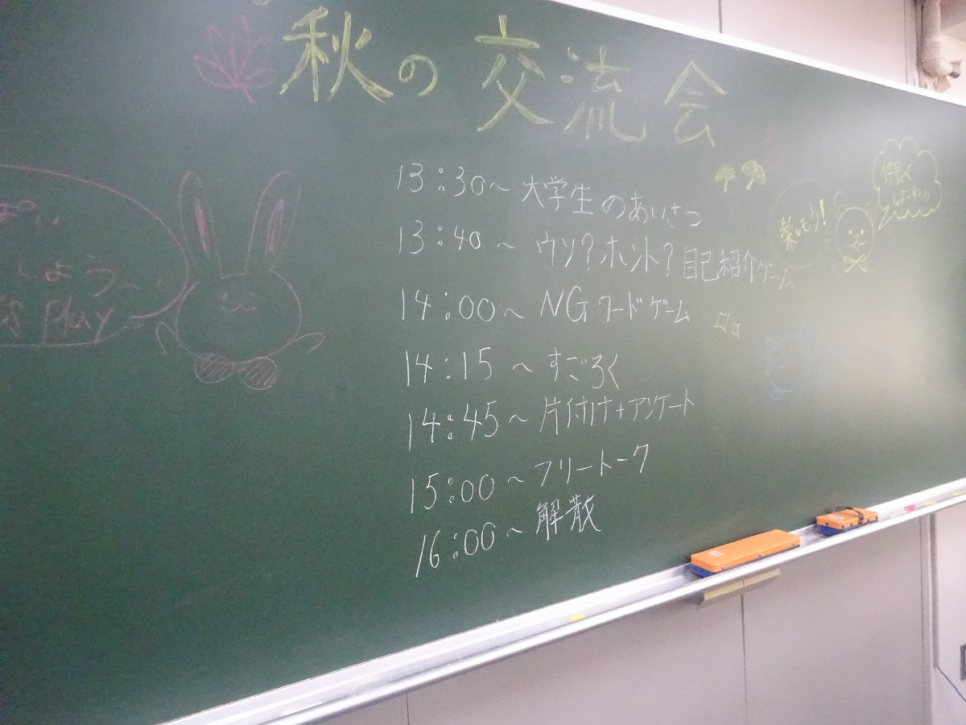 秋の交流会
13:30～ 大学生のあいさつ
13:40～ ウソ?ホント?自己紹介ゲーム
14:00～ NGワードゲーム
14:15～ すごろく
14:45～ 片付け+アンケート
15:00～ フリートーク
16:00～ 解散
しよう～
play
楽しもう!